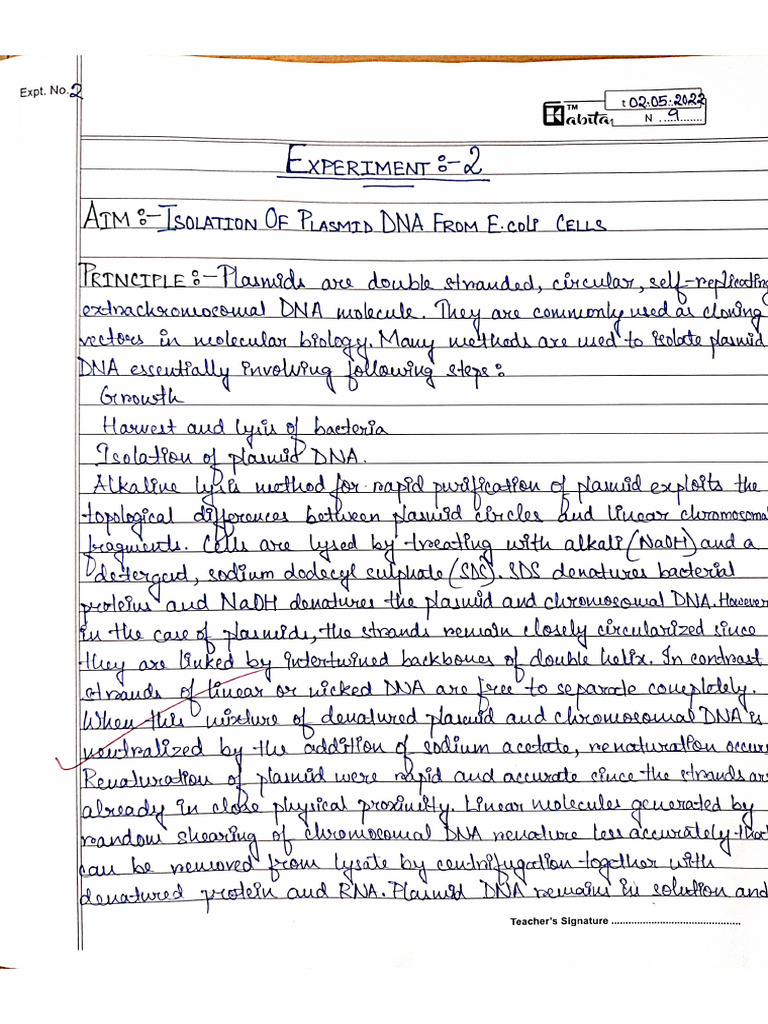 Expt. No. 2
Kabita TM
: 02.05.2022
N ....9.......
EXPERIMENT :- 2
AIM :- ISOLATION OF PLASMID DNA FROM E.coli CELLS
PRINCIPLE :- Plasmids are double stranded, circular, self-replicating
extrachromosomal DNA molecule. They are commonly used as cloning
vectors in molecular biology. Many methods are used to isolate plasmid
DNA essentially involving following steps :
Growth
Harvest and lysis of bacteria
Isolation of plasmid DNA.
Alkaline lysis method for rapid purification of plasmid exploits the
topological differences between plasmid circles and linear chromosomal
fragments. Cells are lysed by treating with alkali (NaOH) and a
detergent, sodium dodecyl sulphate (SDS). SDS denatures bacterial
proteins and NaOH denatures the plasmid and chromosomal DNA. However
in the case of plasmids, the strands remain closely circularized since
they are linked by intertwined backbones of double helix. In contrast
strands of linear or nicked DNA are free to separate completely.
When this mixture of denatured plasmid and chromosomal DNA is
neutralized by the addition of sodium acetate, renaturation occurs
Renaturation of plasmid were rapid and accurate since the strands are
already in close physical proximity. Linear molecules generated by
random shearing of chromosomal DNA renature less accurately that
can be removed from lysate by centrifugation together with
denatured protein and RNA. Plasmid DNA remains in solution and
Teacher's Signature ............................................